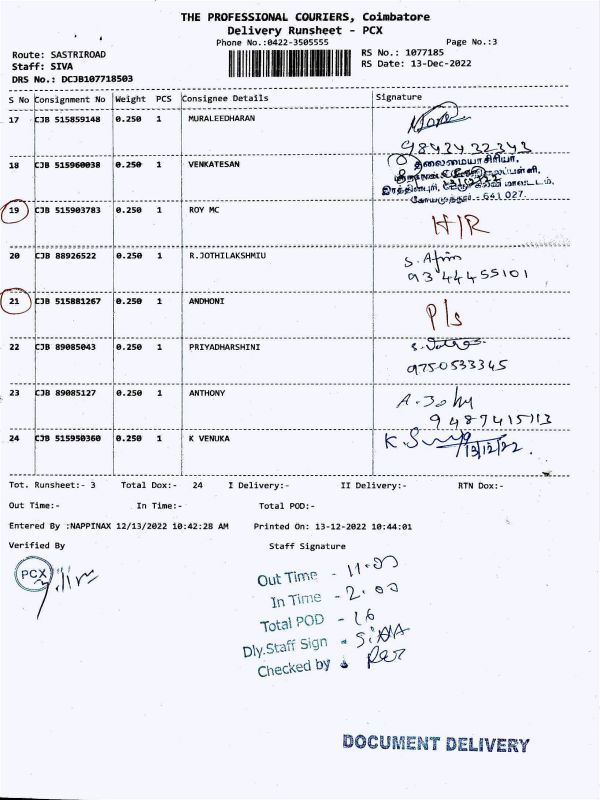 THE PROFESSIONAL COURIERS, Coimbatore
Delivery Runsheet - PCX
Phone No.:0422-3505555
Page No.:3
Route: SASTRIROAD
Staff: SIVA
DRS No.: DCJB107718503
RS No.: 1077185
RS Date: 13-Dec-2022
S No Consignment No Weight PCS Consignee Details Signature
17 CJB 515859148 0.250 1 MURALEEDHARAN
9843432343
18 CJB 515960038 0.250 1 VENKATESAN
தலைமையாசிரியர்,
கோயமுத்தூர் - 641 027.
19 CJB 515903783 0.250 1 ROY MC H/R
20 CJB 88926522 0.250 1 R.JOTHILAKSHMIU S. Afrin
9344455101
21 CJB 515881267 0.250 1 ANDHONI P/s
22 CJB 89085043 0.250 1 PRIYADHARSHINI
9750533345
23 CJB 89085127 0.250 1 ANTHONY A. Johy
9487415113
24 CJB 515950360 0.250 1 K VENUKA
13/12/22.
Tot. Runsheet:- 3 Total Dox:- 24 I Delivery:- II Delivery:- RTN Dox:-
Out Time:- In Time:- Total POD:-
Entered By :NAPPINAX 12/13/2022 10:42:28 AM Printed On: 13-12-2022 10:44:01
Verified By Staff Signature
PCX
Out Time - 11.00
In Time - 2.00
Total POD - 16
Dly.Staff Sign - SiVA
Checked by
DOCUMENT DELIVERY